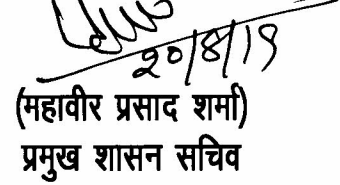 २०/8/19
(महावीर प्रसाद शर्मा)
प्रमुख शासन सचिव